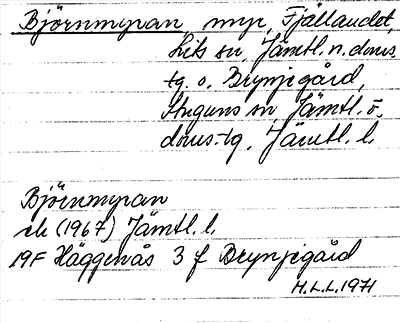 Björnmyran myr, Fjällandet,
Lits sn, Jämtl. n. doms-
tg. o. Brynjegård,
Stuguns sn, Jämtl. ö.
doms.tg, Jämtl. l.
Björnmyran
ek (1967) Jämtl. l.
19F Häggenås 3 f Brynjegård
H.L.L. 1971